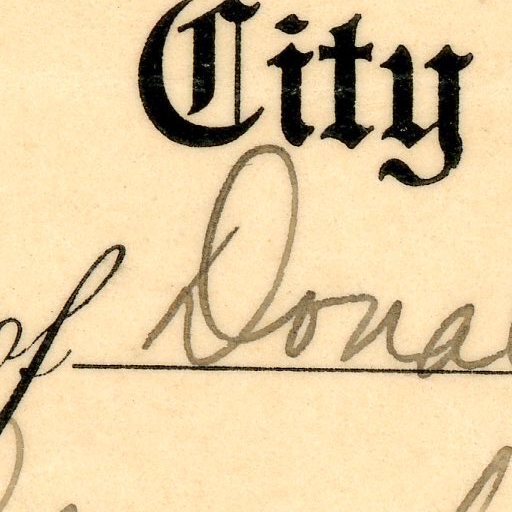 City
of Dona